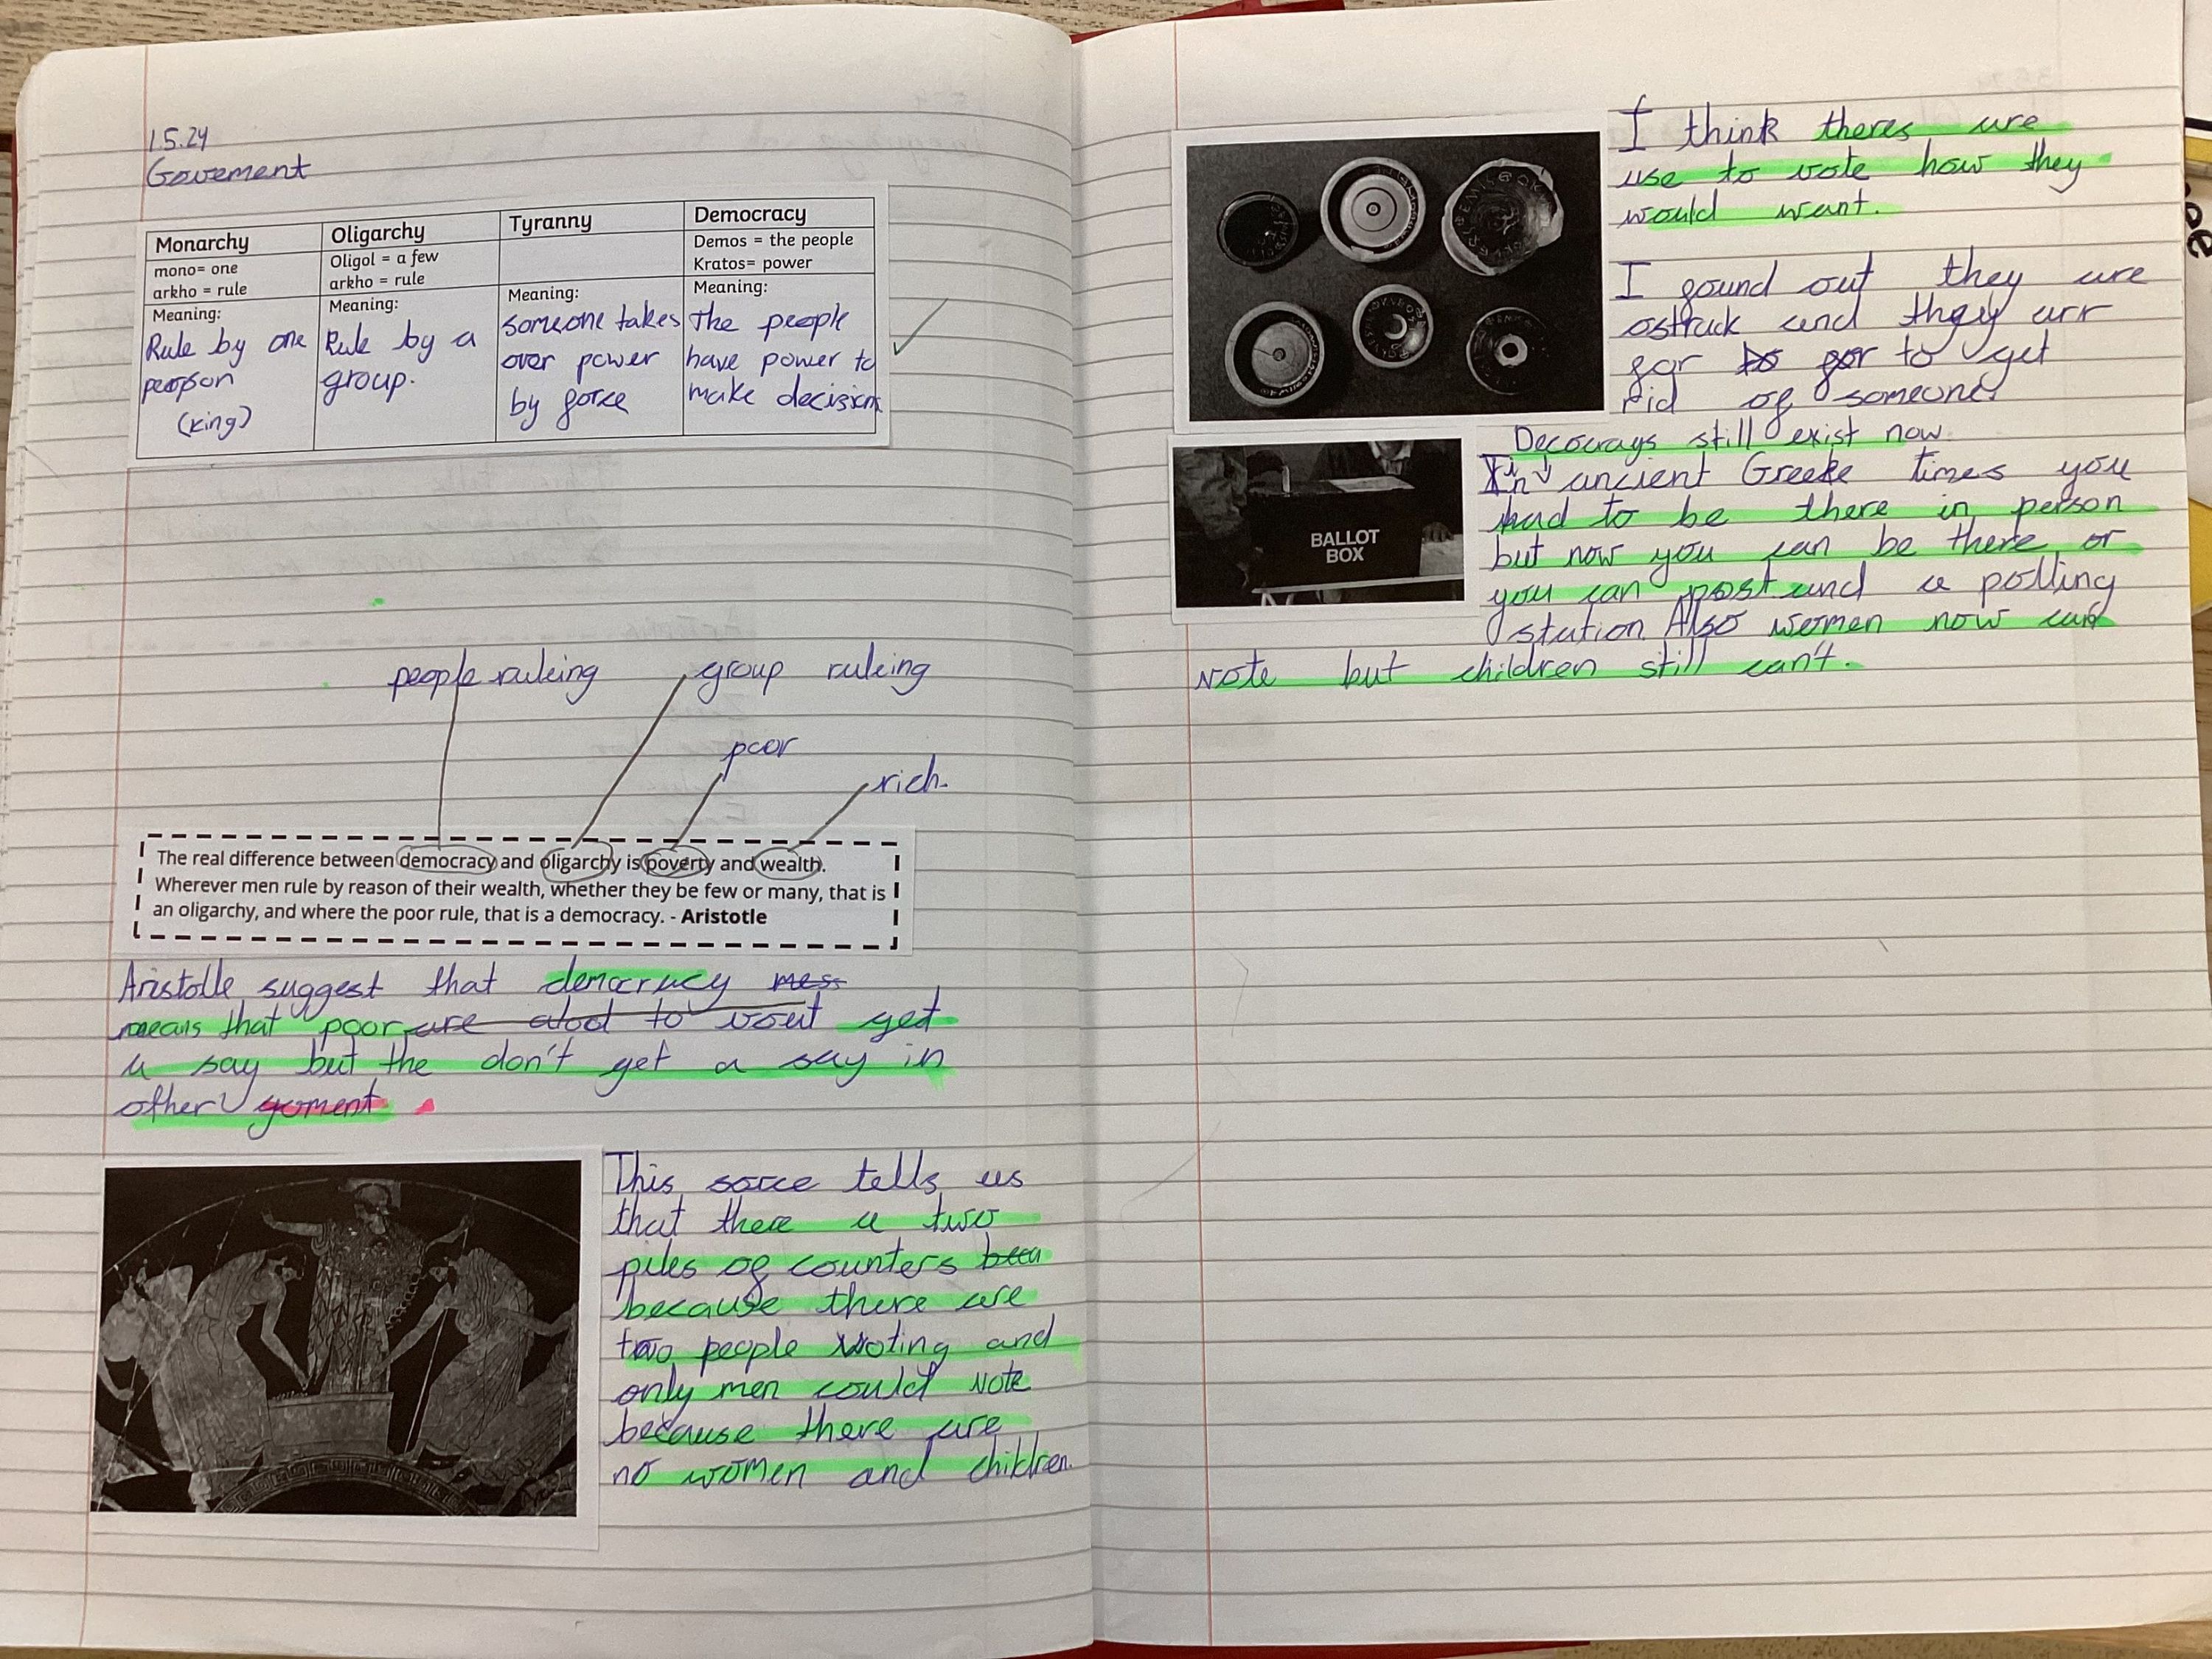 1.5.24
Goverment
Monarchy
mono= one
arkho = rule
Meaning:
Rule by one
person
(king)
Oligarchy
Oligol = a few
arkho = rule
Meaning:
Rule by a
group.
Tyranny
Meaning:
someone takes
over power
by force
Democracy
Demos = the people
Kratos= power
Meaning:
The people
have power to
make decisions
people ruleing
group ruleing
poor
rich.
The real difference between democracy and oligarchy is poverty and wealth.
Wherever men rule by reason of their wealth, whether they be few or many, that is
an oligarchy, and where the poor rule, that is a democracy. - Aristotle
Aristolle suggest that democracy mes
means that poor are to vout get
a say but the don't get a say in
other goment.
This sorce tells us
that there a two
piles of counters beca
because there are
two people voting and
only men could vote
because there are
no women and children.
I think theres are
use to vote how they
would want.
I found out they are
ostrack and they arr
for to get
rid of someone
Decocrays still exist now.
In ancient Greeke times you
had to be there in person
but now you can be there or
you can post and a polling
station Also women now can
vote but children still can't.
BALLOT
BOX